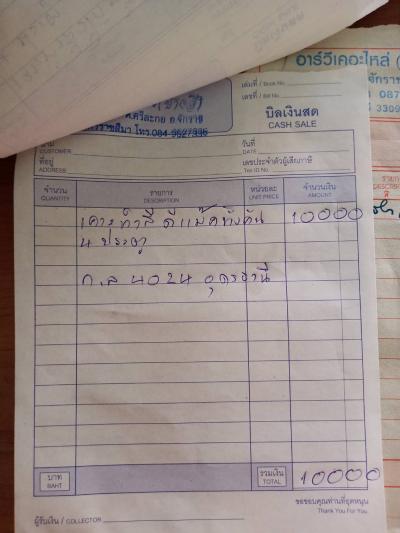 เล่มที่ / Book No.
เลขที่ / Bill No.
อาร์วีเคอะไหล่ (
จักราช
087
3309
ต.ศรีละกอ อ.จักราช
โทร.084-9627996
บิลเงินสด
CASH SALE
นาม
CUSTOMER
วันที่
DATE
ที่อยู่
ADDRESS
เลขประจำตัวผู้เสียภาษี
Tax ID No.
จำนวน รายการ หน่วยละ จำนวนเงิน
QUANTITY DESCRIPTION UNIT PRICE AMOUNT
เคาะทำสี ดีแม็คทั้งคัน 10000
4 ประตู
ก.ล 4024 อุดรธานี
บาท
BAHT
รวมเงิน
TOTAL
10000
ขอขอบคุณท่านที่อุดหนุน
Thank You For You.
ผู้รับเงิน / COLLECTOR